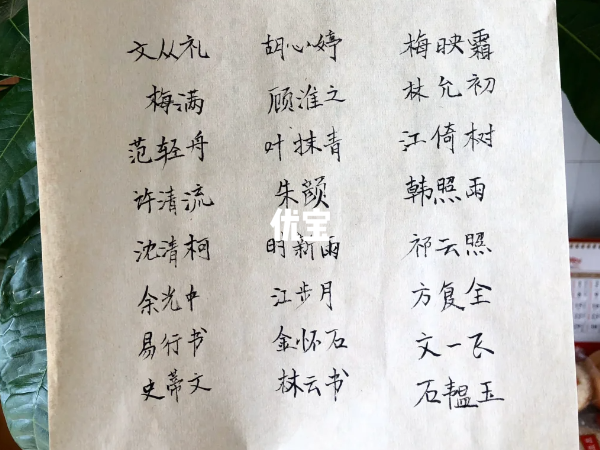 文从礼 胡心婷 梅映霜
梅满 顾淮之 林允初
范轻舟 叶抹青 江倚树
许清流 朱颜 韩照雨
优宝
沈清柯 明新雨 祁云照
余光中 江步月 方复全
易行书 金怀石 文一飞
史蒂文 林云书 石韫玉